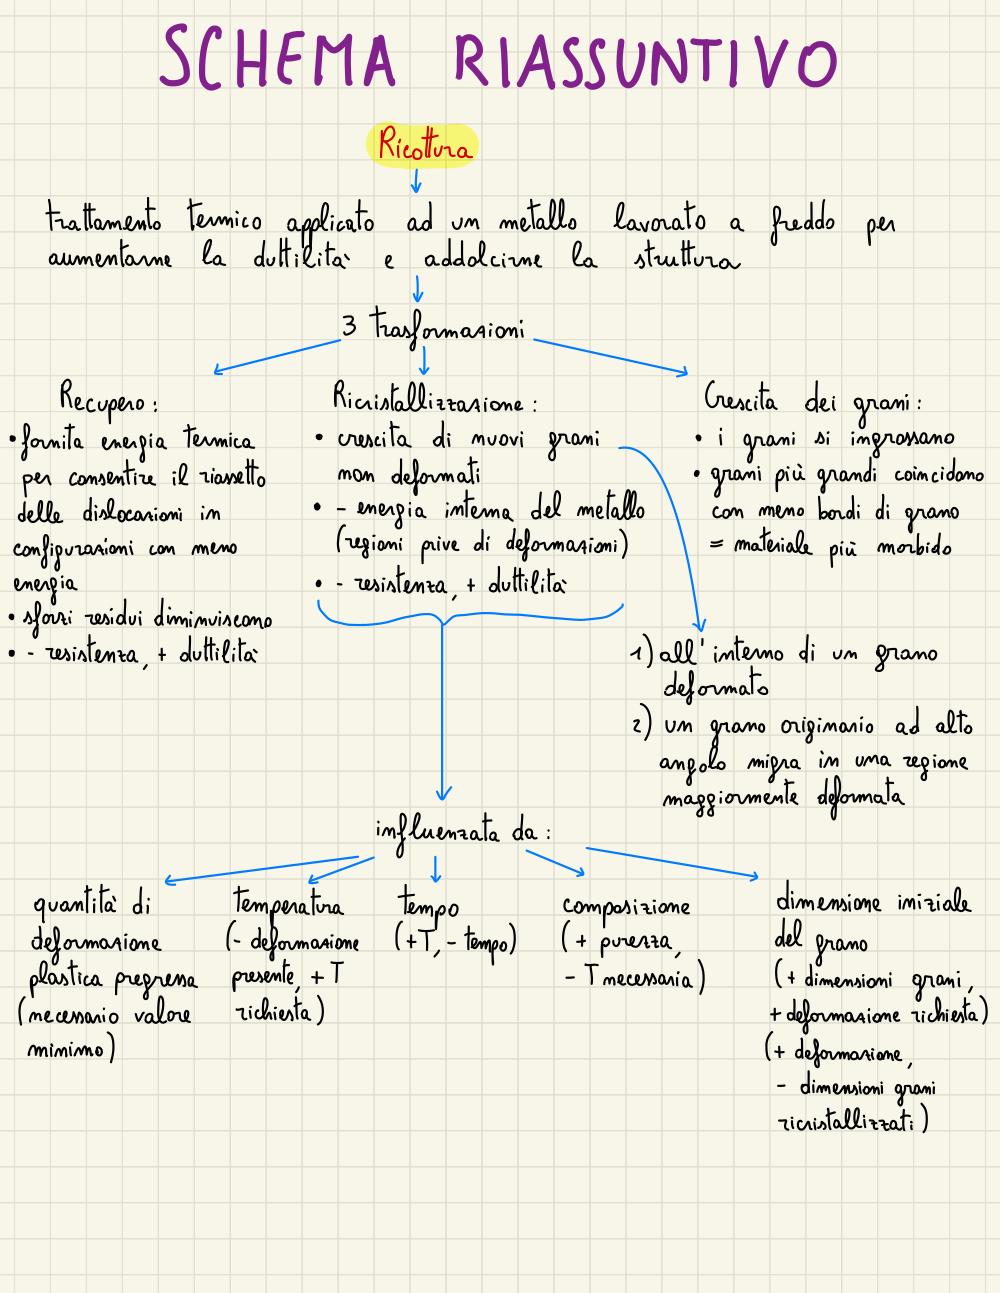 SCHEMA RIASSUNTIVO
Ricottura
trattamento termico applicato ad un metallo lavorato a freddo per
aumentarne la duttilità e addolcirne la struttura
3 trasformazioni
Recupero:
• fornita energia termica
per consentire il riassetto
delle dislocazioni in
configurazioni con meno
energia
• sforzi residui diminuiscono
• - resistenza, + duttilità
Ricristallizzazione:
• crescita di nuovi grani
non deformati
• - energia interna del metallo
(regioni prive di deformazioni)
• - resistenza, + duttilità
Crescita dei grani:
• i grani si ingrossano
• grani più grandi coincidono
con meno bordi di grano
= materiale più morbido
1) all'interno di un grano
deformato
2) un grano originario ad alto
angolo migra in una regione
maggiormente deformata
influenzata da:
quantità di
deformazione
plastica pregressa
(necessario valore
minimo)
temperatura
(- deformazione
presente, + T
richiesta)
tempo
(+T, - tempo)
composizione
(+ purezza,
- T necessaria)
dimensione iniziale
del grano
(+ dimensioni grani,
+ deformazione richiesta)
(+ deformazione,
- dimensioni grani
ricristallizzati)